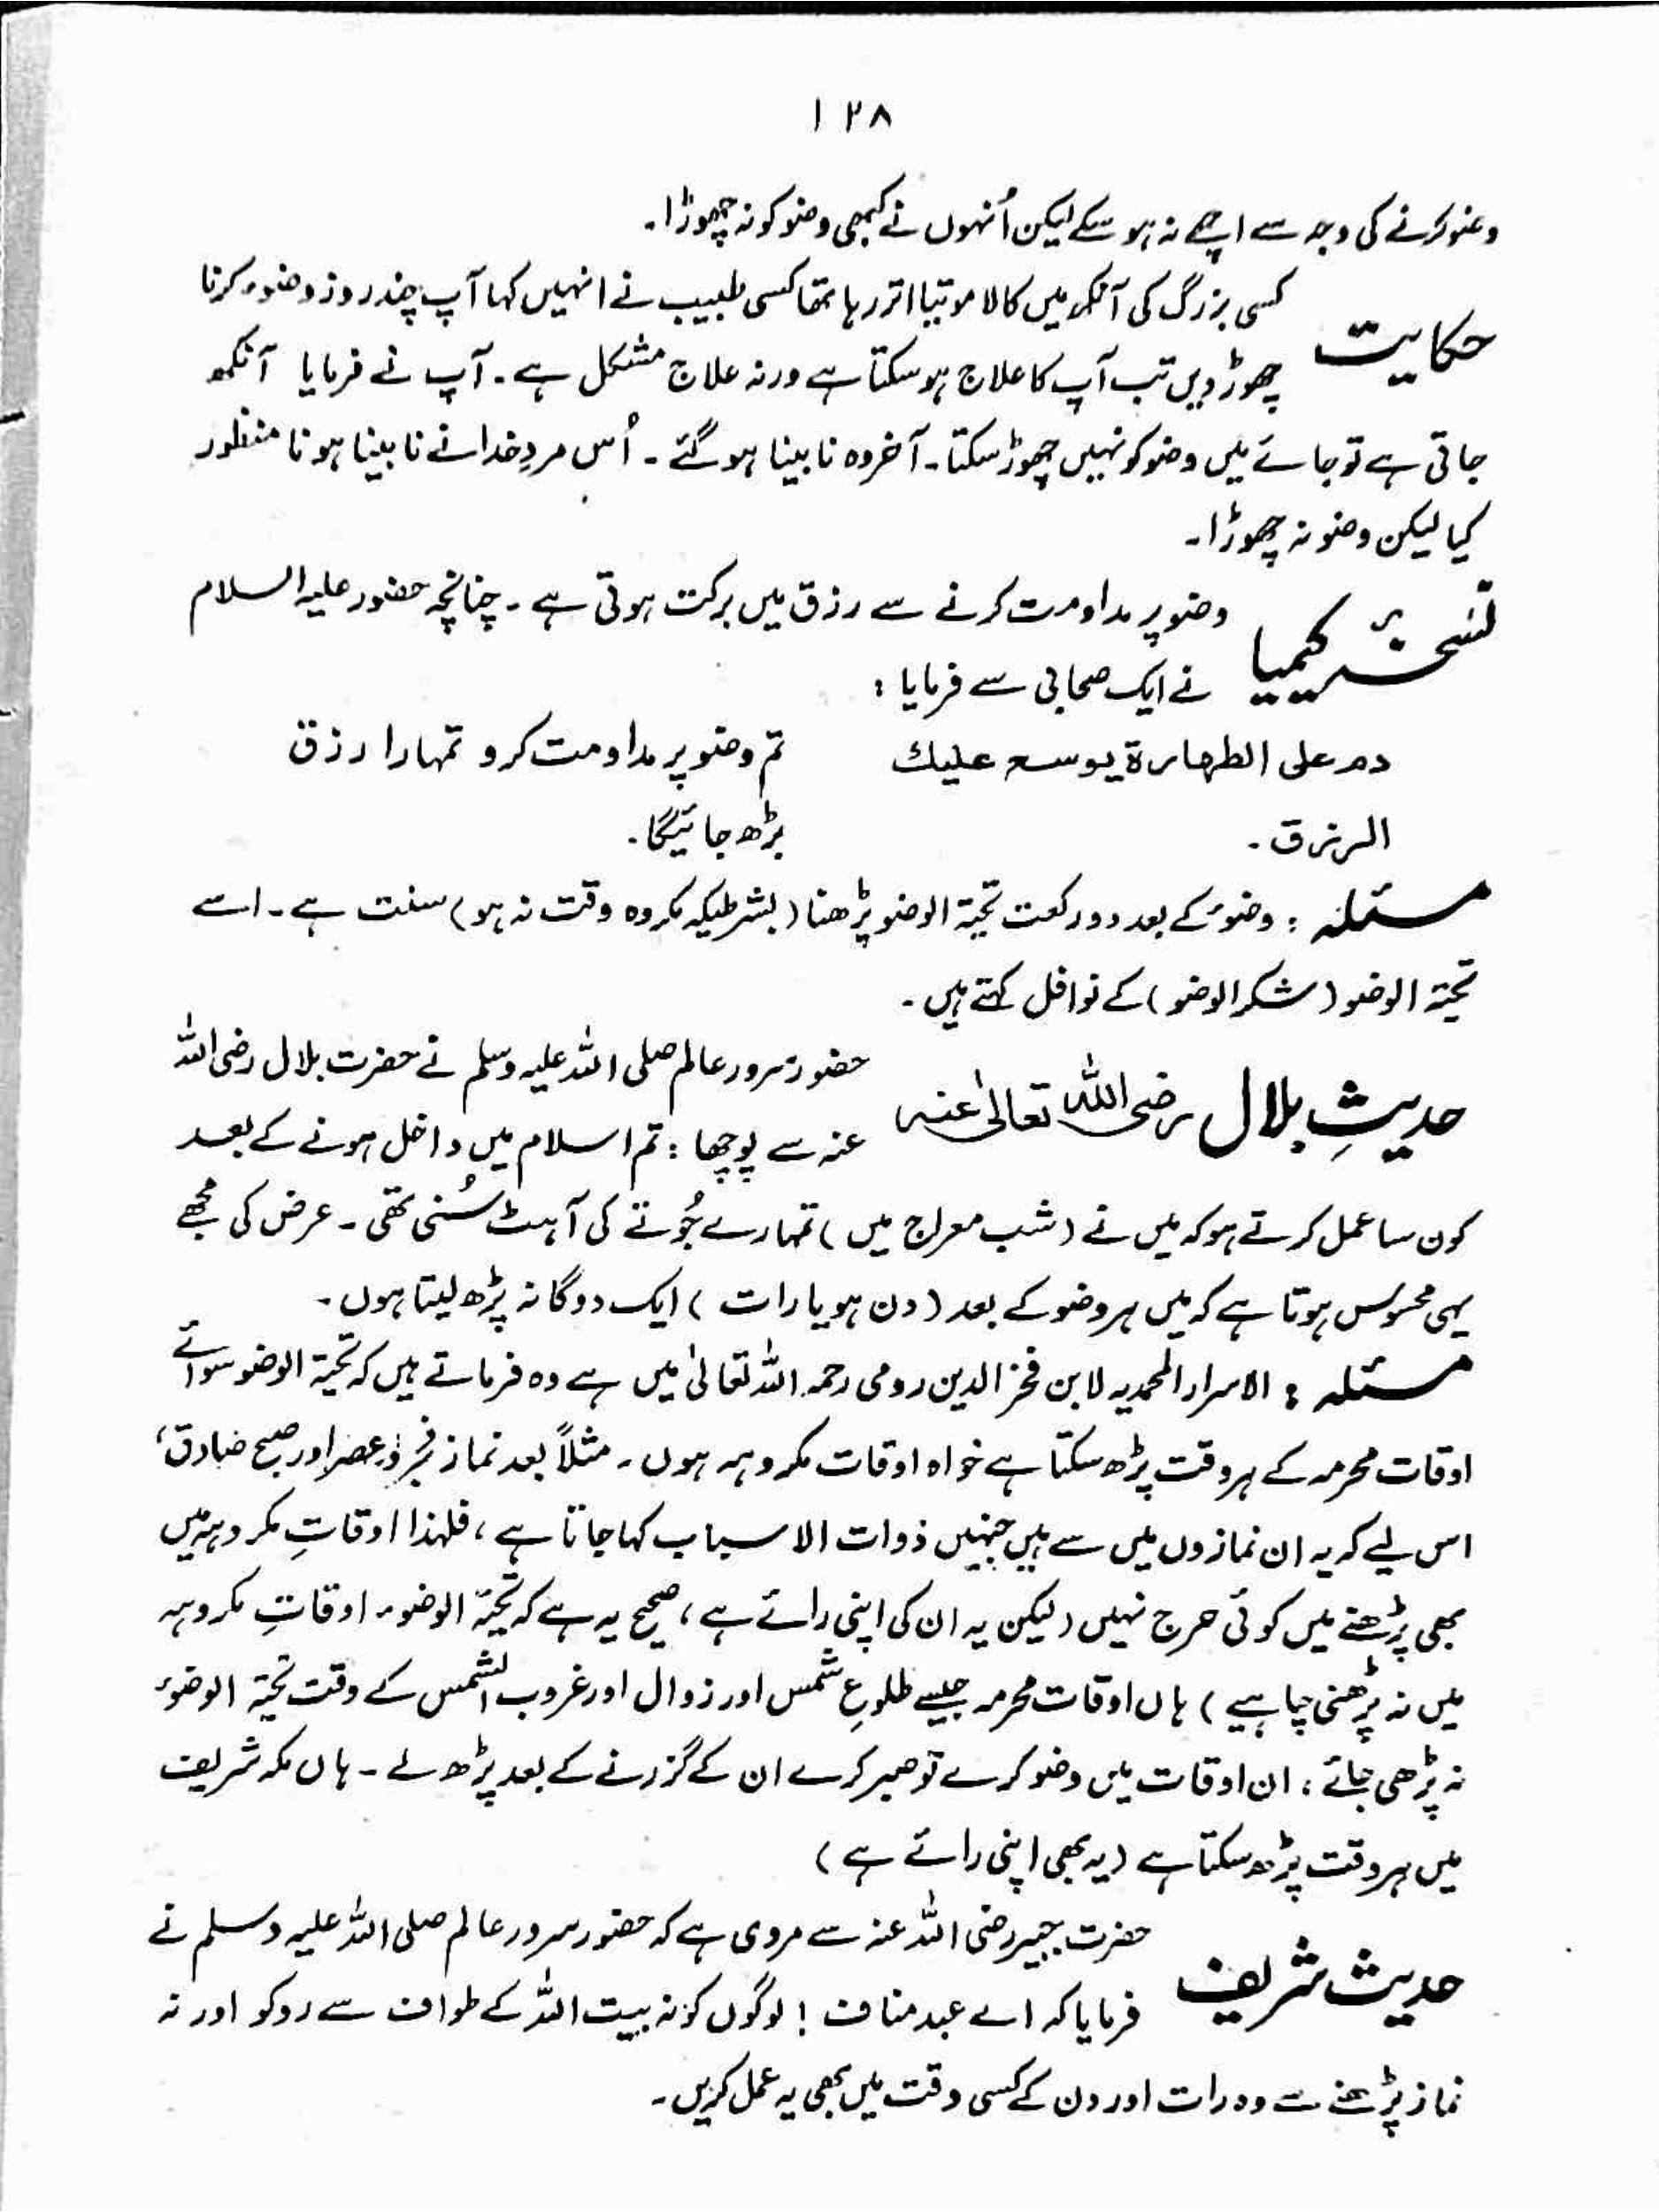 ۱۲۸
وضو کرنے کی وجہ سے اچھے نہ ہو سکے لیکن اُنہوں نے کبھی وضو کو نہ چھوڑا۔
حکایت کسی بزرگ کی آنکھ میں کالا موتیا اتر رہا تھا کسی طبیب نے انہیں کہا آپ چند روز وضوء کرنا
چھوڑ دیں تب آپ کا علاج ہو سکتا ہے ورنہ علاج مشکل ہے۔ آپ نے فرمایا آنکھ
جاتی ہے تو جائے میں وضو کو نہیں چھوڑ سکتا۔ آخر وہ نابینا ہو گئے۔ اُس مردِ خدا نے نابینا ہونا منظور
کیا لیکن وضو نہ چھوڑا۔
نسخۂ کیمیا وضو پر مداومت کرنے سے رزق میں برکت ہوتی ہے۔ چنانچہ حضور علیہ السلام
نے ایک صحابی سے فرمایا :
دم على الطهارة يوسع عليك تم وضو پر مداومت کرو تمہارا رزق
الرزق۔ بڑھ جائیگا۔
مسئلہ : وضوء کے بعد دو رکعت تحیۃ الوضو پڑھنا (بشرطیکہ مکروہ وقت نہ ہو) سنت ہے۔ اسے
تحیۃ الوضو (شکر الوضو) کے نوافل کہتے ہیں۔
حدیثِ بلال رضی اللہ تعالیٰ عنہ حضور سرور عالم صلی اللہ علیہ وسلم نے حضرت بلال رضی اللہ
عنہ سے پوچھا : تم اسلام میں داخل ہونے کے بعد
کون سا عمل کرتے ہو کہ میں نے (شب معراج میں) تمہارے جُوتے کی آہٹ سُنی تھی۔ عرض کی مجھے
یہی محسوس ہوتا ہے کہ میں ہر وضو کے بعد (دن ہو یا رات) ایک دوگانہ پڑھ لیتا ہوں۔
مسئلہ : الاسرار المحمدیہ لابن فخر الدین رومی رحمہ اللہ تعالیٰ میں ہے وہ فرماتے ہیں کہ تحیۃ الوضو سوائے
اوقات محرمہ کے ہر وقت پڑھ سکتا ہے خواہ اوقات مکروہہ ہوں۔ مثلاً بعد نماز فجر و عصر اور صبح صادق،
اس لیے کہ یہ ان نمازوں میں سے ہیں جنہیں ذوات الاسباب کہا جاتا ہے، فلہذا اوقاتِ مکروہہ میں
بھی پڑھنے میں کوئی حرج نہیں (لیکن یہ ان کی اپنی رائے ہے، صحیح یہ ہے کہ تحیۃ الوضوء اوقاتِ مکروہہ
میں نہ پڑھنی چاہیے) ہاں اوقات محرمہ جیسے طلوعِ شمس اور زوال اور غروب الشمس کے وقت تحیۃ الوضوء
نہ پڑھی جائے، ان اوقات میں وضو کرے تو صبر کرے ان کے گزرنے کے بعد پڑھ لے۔ ہاں مکہ شریف
میں ہر وقت پڑھ سکتا ہے (یہ بھی اپنی رائے ہے)
حدیث شریف حضرت جبیر رضی اللہ عنہ سے مروی ہے کہ حضور سرور عالم صلی اللہ علیہ وسلم نے
فرمایا کہ اے عبد مناف ! لوگوں کو نہ بیت اللہ کے طواف سے روکو اور نہ
نماز پڑھنے سے وہ رات اور دن کے کسی وقت میں بھی یہ عمل کریں۔